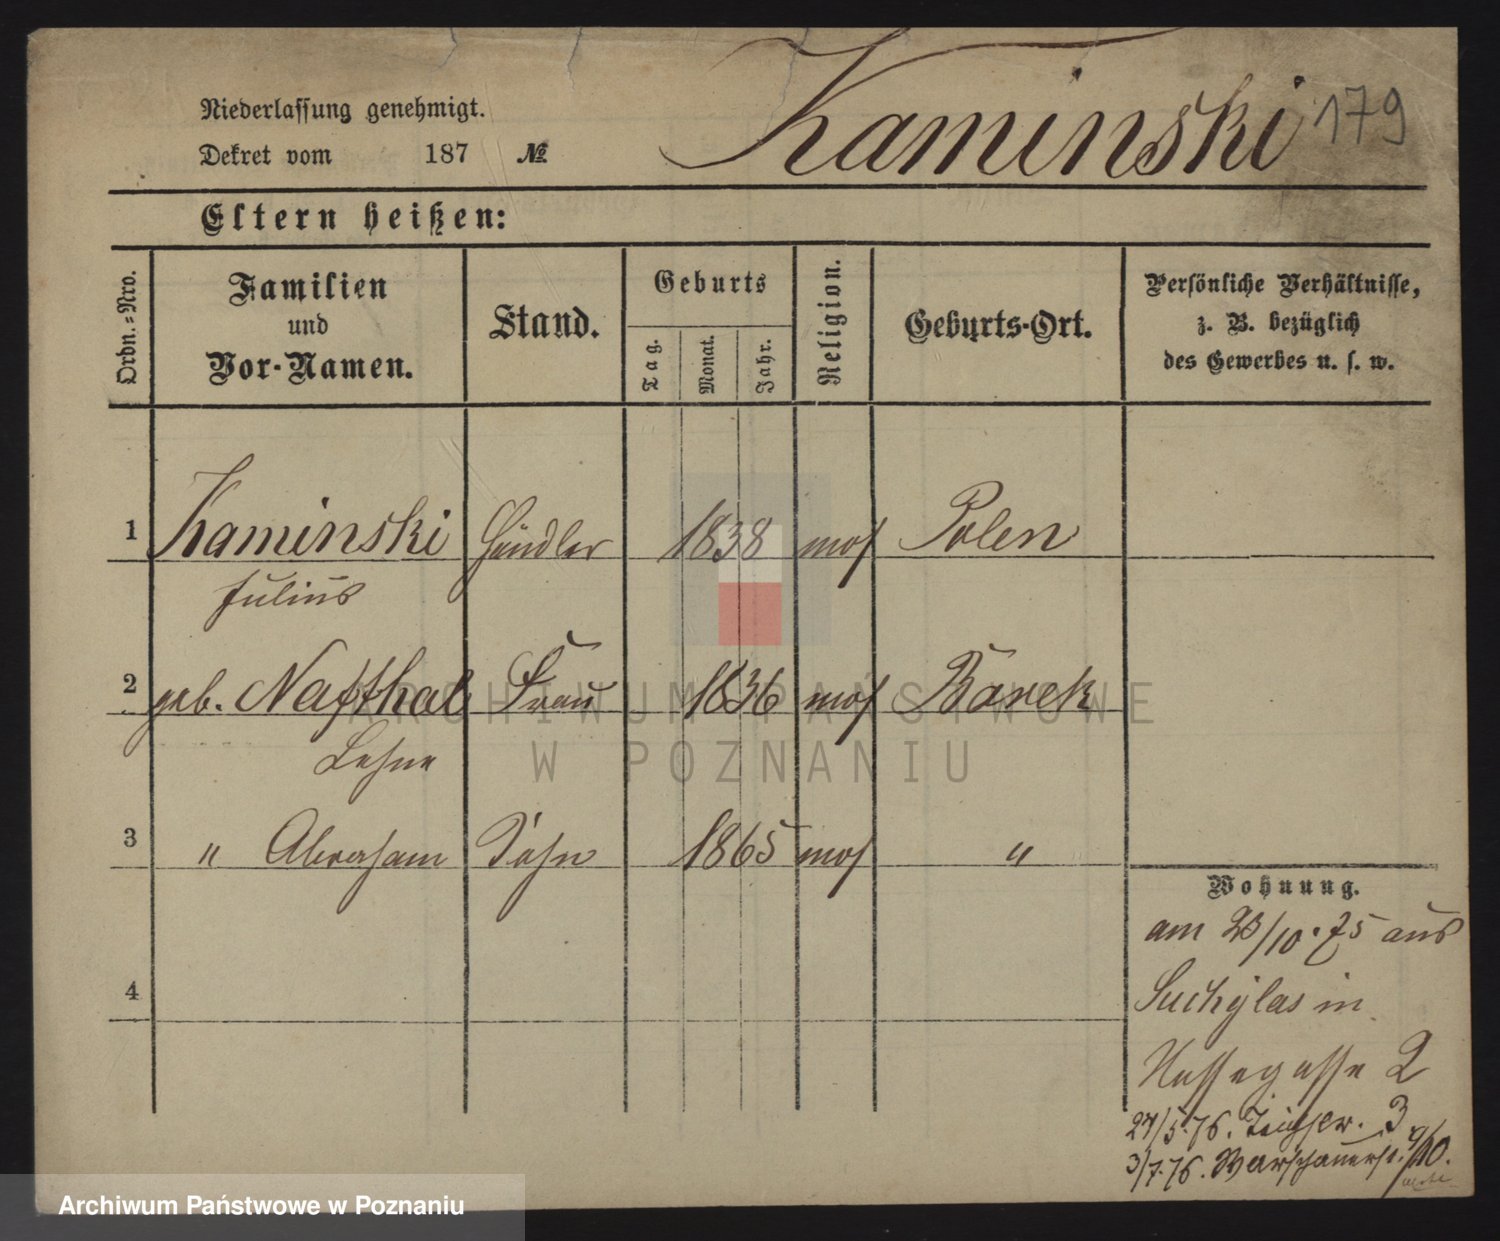 Kaminski 179
Niederlassung genehmigt.
Dekret vom 187 №
Eltern heißen:
Ordn.-Nro.
Familien
und
Vor-Namen.
Stand.
Geburts
Tag.
Monat.
Jahr.
Religion.
Geburts-Ort.
Persönliche Verhältnisse,
z. B. bezüglich
des Gewerbes u. s. w.
1 Kaminski Händler 1838 mos Polen
Julius
2 geb. Nafthal Frau 1836 mos Borek
3 " Abraham Sohn 1865 mos "
4
Wohnung.
am 23/10.75 aus
Suchylas in
Nassegasse 2
27/5.76. 3
3/7.76. Warschauerst. 9/10.
ARCHIWUM PAŃSTWOWE
W POZNANIU
Archiwum Państwowe w Poznaniu